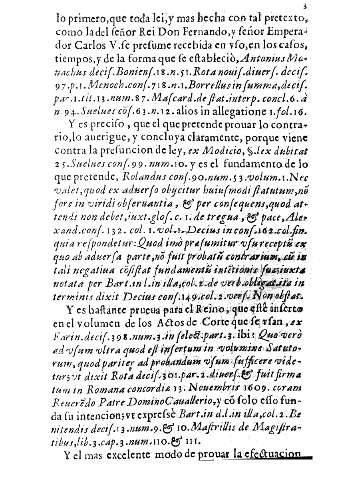 3
lo primero, que toda lei, y mas hecha con tal pretexto,
como la del señor Rei Don Fernando, y señor Empera-
dor Carlos V. se presume recebida en vso, en los casos,
tiempos, y de la forma que se estableciò, Antonius Mo-
nachus decis. Boniens. 18. n. 51. Rota noui. diuers. decis.
97. p. 1. Menoch. cons. 718. n. 1. Borrellus in summa, decis.
par. 1. tit. 13. num. 87. Mascard. de stat. interp. concl. 6. à
n. 94. Suelues cōs. 63. n. 12. alios in allegatione 1. fol. 16.
Y es preciso, que el que pretende prouar lo contra-
rio, lo auerigue, y concluya claramente, porque viene
contra la presuncion de ley, ex Modicio, §. lex dubitat
25. Suelues cons. 99. num. 10. y es el fundamento de lo
que pretende, Rolandus cons. 90. num. 53. volum. 1. Nec
valet, quod ex aduerso obijcitur huiusmodi statutum, nō
fore in viridi obseruantia, & per consequens, quod at-
tendi non debet, iuxt. glos. c. 1. de tregua, & pace, Ale-
xand. cons. 132. col. 1. vol. 1. Decius in cons. 162. col. fin.
quia respondetur: Quod imò præsumitur vsu receptū ex
quo ab aduersa parte, nō fuit probatū contrarium, cū in
tali negatiua cōsistat fundamentū intētionis suæ, iuxta
notata per Bart. in l. in illa, col. 2. de verb. obligat. ita in
terminis dixit Decius cons. 149. col. 2. vers. Non obstat.
Y es bastante prueua para el Reino, que estè inserto
en el volumen de los Actos de Corte que se vsan, ex
Farin. decis. 398. num. 3. in select. part. 3. ibi: Quo verò
ad vsum vltra quod est insertum in volumine Statuto-
rum, quod pariter ad probandum vsum sufficere vide-
tur; vt dixit Rota decis. 301. par. 2. diuers. & fuit firma
tum in Romana concordia 13. Nouembris 1609. coram
Reuerēdo Patre Domino Cauallerio, y cō solo esso fun-
da su intencion, vt expressè Bart. in d. l. in illa, col. 2. Be
nitendis decis. 3. num. 10. Mastrillis de Magistra-
tibus, lib. 3. cap. 3. num. 110. & 111.
Y el mas excelente modo de prouar la efectuacion